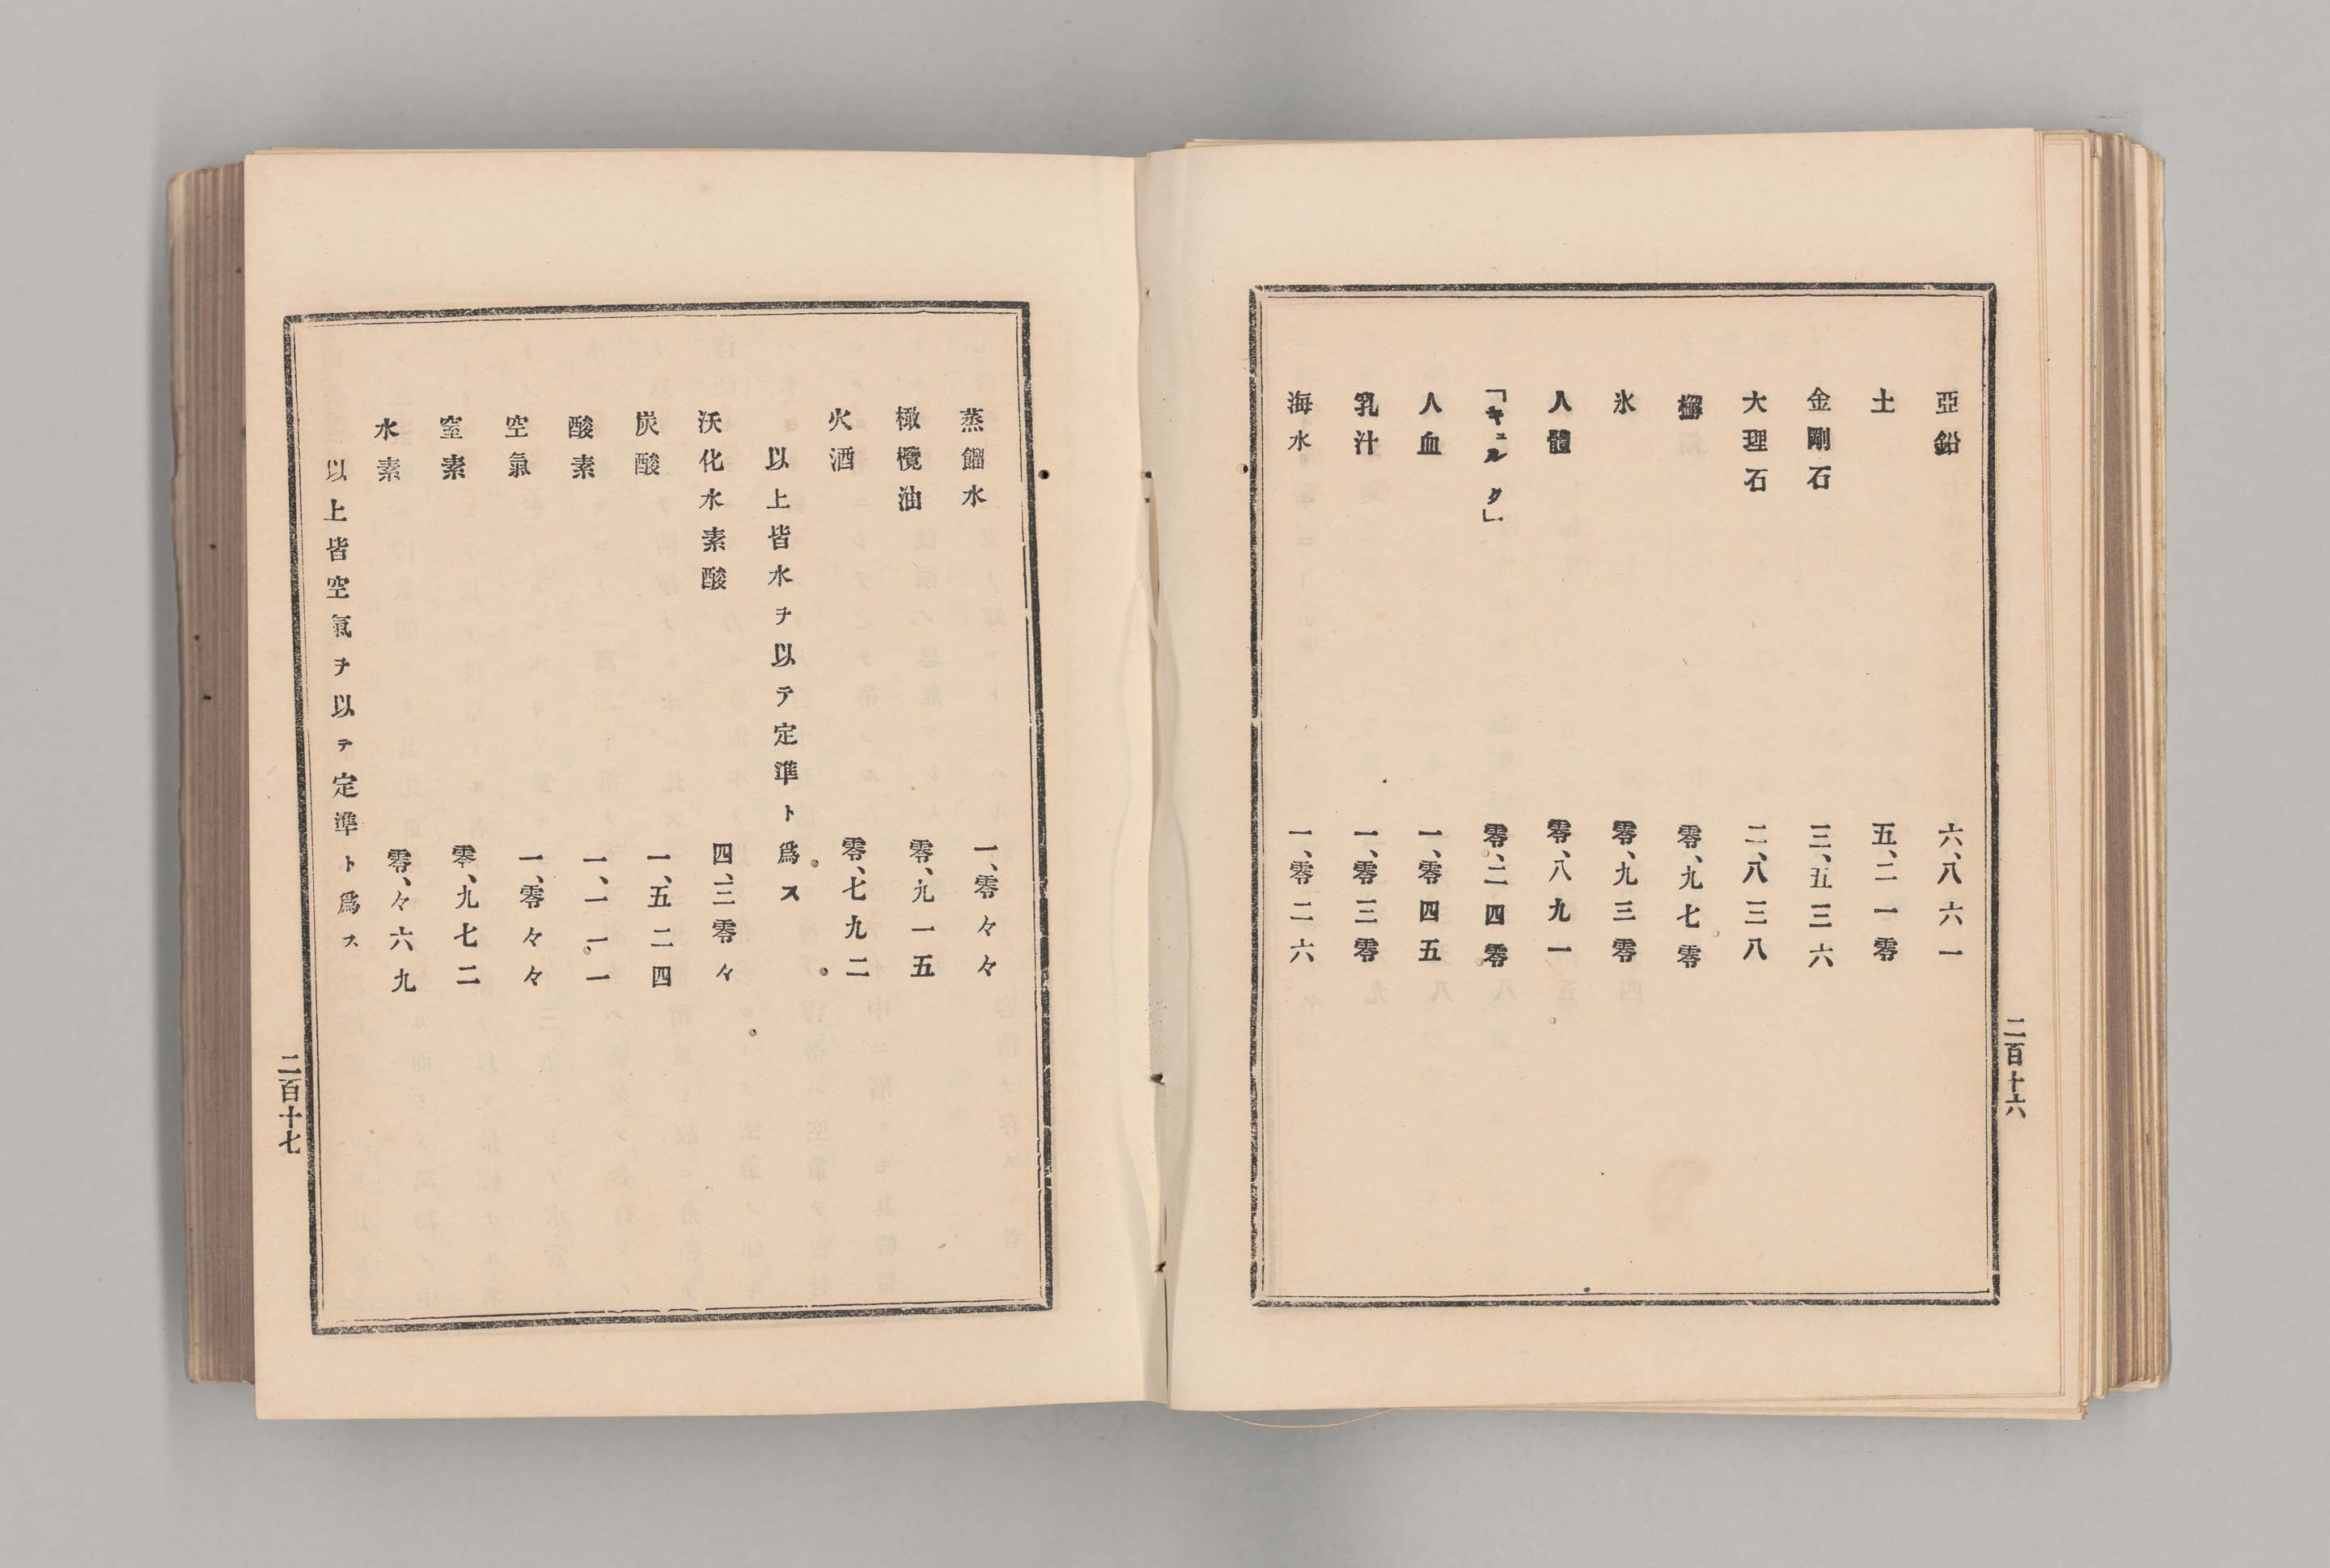 亞鉛 六、八六一
土 五、二一零
金剛石 三、五三六
大理石 二、八三八
零、九七零
氷 零、九三零
人體 零、八九一
「キュルク」 零、二四零
人血 一、零四五
乳汁 一、零三零
海水 一、零二六
二百十六
蒸餾水 一、零々々
橄欖油 零、九一五
火酒 零、七九二
以上皆水ヲ以テ定準ト爲ス
沃化水素酸 四、三零々
炭酸 一、五二四
酸素 一、一一一
空氣 一、零々々
窒素 零、九七二
水素 零、々六九
以上皆空氣ヲ以テ定準ト爲ス
二百十七